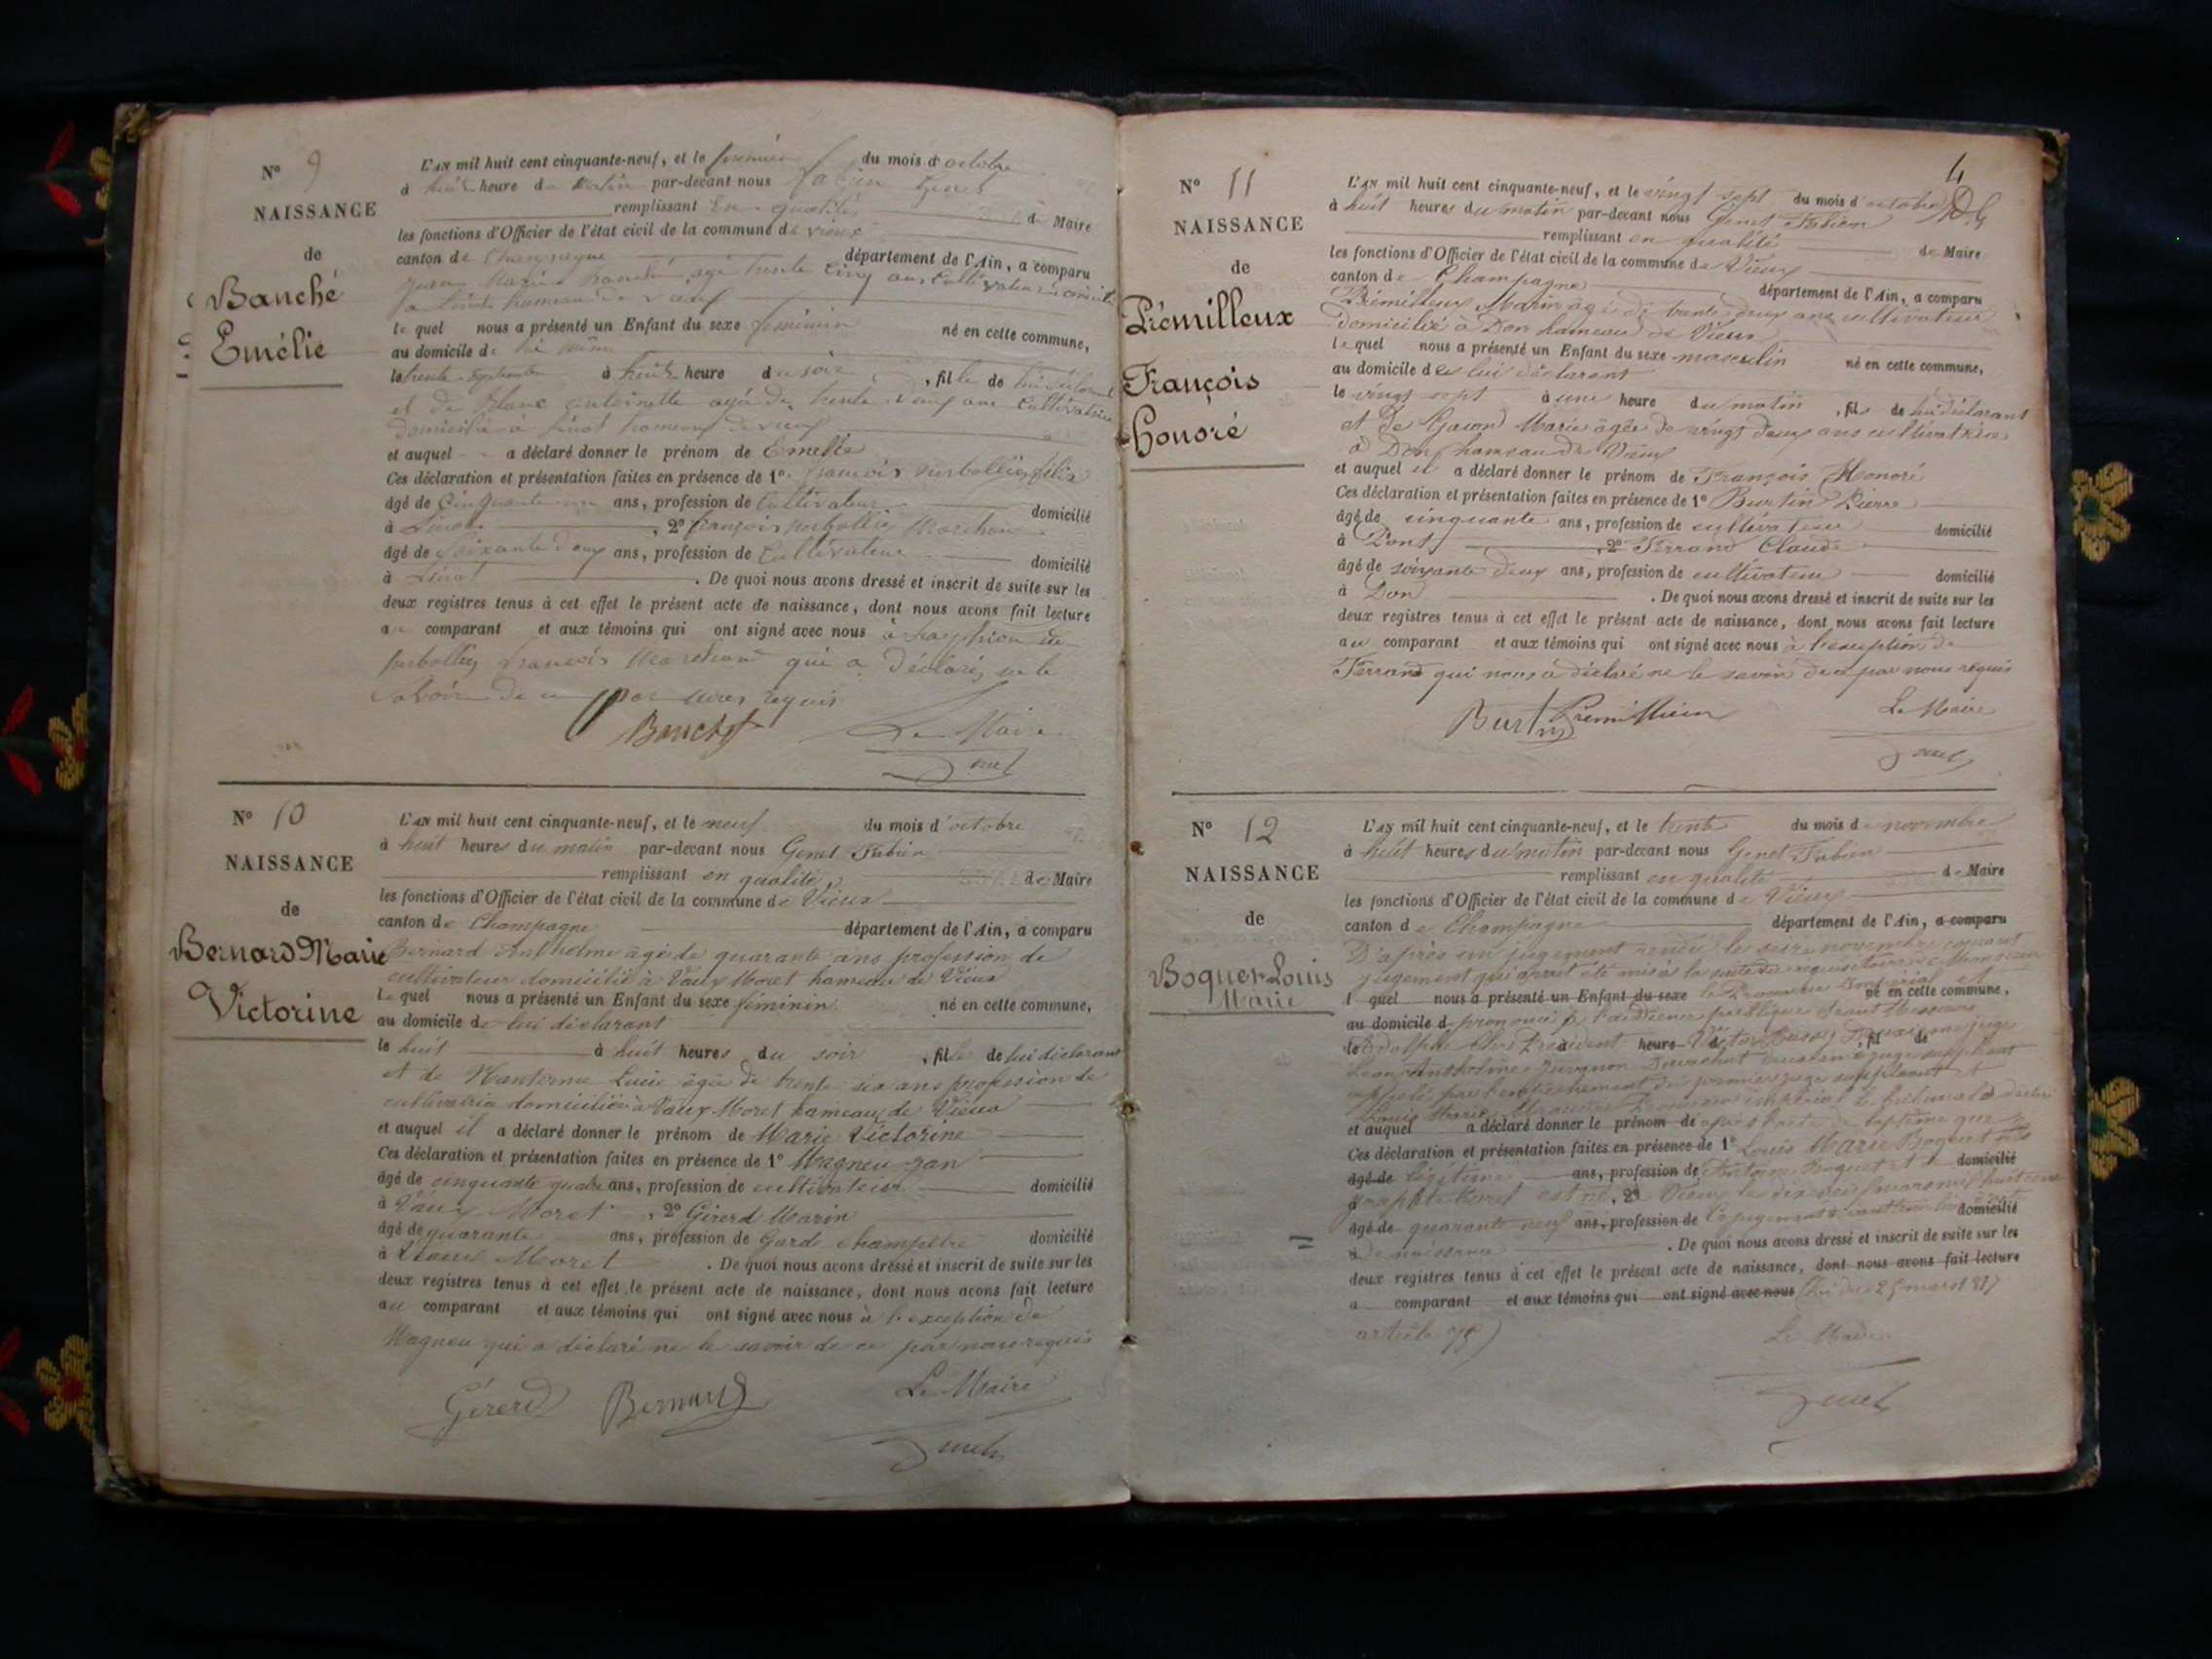 N° 9
NAISSANCE
de
Banché
Emélie
L'AN mil huit cent cinquante-neuf, et le premier du mois d'octobre
à huit heure du matin par-devant nous Fabien Genet
remplissant en qualité de Maire
les fonctions d'Officier de l'état civil de la commune de Vieux
canton de Champagne département de l'Ain, a comparu
Marin âgé trente cinq ans Cultivateur
hameau de Vieux
le quel nous a présenté un Enfant du sexe féminin né en cette commune,
au domicile de lui même
le trente Septembre à huit heure du soir, fille de lui déclarant
et de Blanc antoinette agée de trente deux ans Cultivatrice
domicilié à hameau de Vieux
et auquel a déclaré donner le prénom de Emelie
Ces déclaration et présentation faites en présence de 1° françois
âgé de Cinquante ans, profession de Cultivateur domicilié
à , 2° françois Marchand
âgé de Soixante deux ans, profession de Cultivateur domicilié
à . De quoi nous avons dressé et inscrit de suite sur les
deux registres tenus à cet effet le présent acte de naissance, dont nous avons fait lecture
au comparant et aux témoins qui ont signé avec nous à
françois Marchand qui a déclaré ne le
Savoir de ce par nous requis
Banchet Le Maire
Genet
N° 10
NAISSANCE
de
Bernard Marie
Victorine
L'AN mil huit cent cinquante-neuf, et le neuf du mois d'octobre
à huit heures du matin par-devant nous Genet Fabien
remplissant en qualité de Maire
les fonctions d'Officier de l'état civil de la commune de Vieux
canton de Champagne département de l'Ain, a comparu
Bernard Anthelme âgé de quarante ans profession de
cultivateur domicilié à Vaux Moret hameau de Vieux
le quel nous a présenté un Enfant du sexe féminin né en cette commune,
au domicile de lui déclarant
le huit à huit heures du soir, fille de lui déclarant
et de Nanterme Lucie âgée de trente six ans profession de
cultivatrice domiciliée à Vaux Moret hameau de Vieux
et auquel il a déclaré donner le prénom de Marie Victorine
Ces déclaration et présentation faites en présence de 1° Magneu Jan
âgé de cinquante quatre ans, profession de cultivateur domicilié
à Vaux Moret, 2° Girerd Marin
âgé de quarante ans, profession de Garde champêtre domicilié
à Vaux Moret. De quoi nous avons dressé et inscrit de suite sur les
deux registres tenus à cet effet le présent acte de naissance, dont nous avons fait lecture
au comparant et aux témoins qui ont signé avec nous à l'exception de
Magneu qui a déclaré ne le savoir de ce par nous requis
Girerd Bernard Le Maire
Genet
4
N° 11
NAISSANCE
de
Prémilleux
François
Honoré
L'AN mil huit cent cinquante-neuf, et le vingt sept du mois d'octobre
à huit heures du matin par-devant nous Genet Fabien
remplissant en qualité de Maire
les fonctions d'Officier de l'état civil de la commune de Vieux
canton de Champagne département de l'Ain, a comparu
Prémilleux Marin âgé de trente deux ans cultivateur
domicilié à Don hameau de Vieux
le quel nous a présenté un Enfant du sexe masculin né en cette commune,
au domicile de lui déclarant
le vingt sept à une heure du matin, fils de lui déclarant
et de Marie âgée de vingt deux ans cultivatrice
à Don hameau de Vieux
et auquel il a déclaré donner le prénom de François Honoré
Ces déclaration et présentation faites en présence de 1° Burtin Pierre
âgé de cinquante ans, profession de cultivateur domicilié
à Dont, 2° Ferrand Claude
âgé de soixante deux ans, profession de cultivateur domicilié
à Don. De quoi nous avons dressé et inscrit de suite sur les
deux registres tenus à cet effet le présent acte de naissance, dont nous avons fait lecture
au comparant et aux témoins qui ont signé avec nous à l'exception de
Ferrand qui nous a déclaré ne le savoir de ce par nous requis
Burtin Premillieux Le Maire
Genet
N° 12
NAISSANCE
de
Boquet Louis
Marie
L'AN mil huit cent cinquante-neuf, et le trente du mois de novembre
à huit heures du matin par-devant nous Genet Fabien
remplissant en qualité de Maire
les fonctions d'Officier de l'état civil de la commune de Vieux
canton de Champagne département de l'Ain, a comparu
D'après un jugement rendu le seize novembre courant
jugement qui aurait été mis à la suite du réquisitoire de Monsieur
l quel nous a présenté un Enfant du sexe le Procureur Impérial et né en cette commune,
au domicile d prononcé à l'audience publique Messieurs
le Président à heure d , fil de
deuxième juge suppléant
appelé par l'empêchement du premier juge suppléant et
Louis Marie impérial le tribunal a déclaré
et auquel a déclaré donner le prénom de que
Ces déclaration et présentation faites en présence de 1° Louis Marie Boquet fils
âgé de légitime ans, profession de Antoine Boquet et domicilié
à est né, 2° Vieux le dix neuf mars mil huit cent
âgé de quarante neuf ans, profession de le jugement domicilié
à de naissance. De quoi nous avons dressé et inscrit de suite sur les
deux registres tenus à cet effet le présent acte de naissance, dont nous avons fait lecture
a comparant et aux témoins qui ont signé avec nous (loi du 25 mars
article 75)
Le Maire
Genet